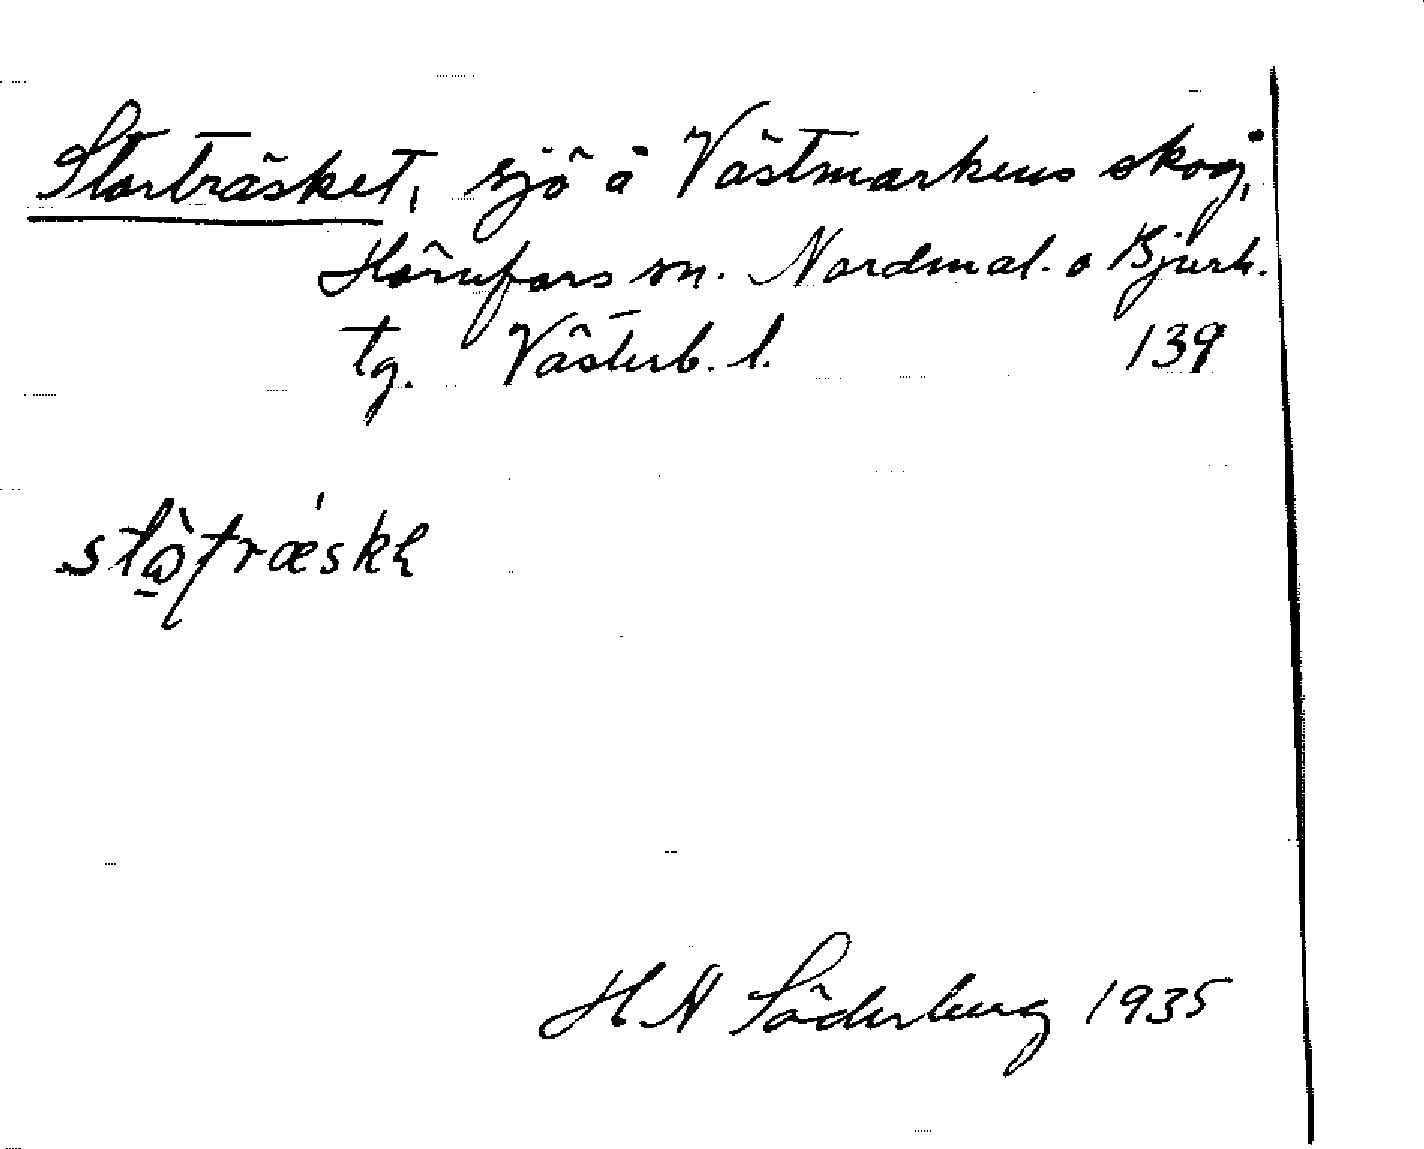 Storträsket, sjö å Västmarkens skog,
Hörnefors sn. Nordmal. o Bjurh.
tg. Västerb. l. 139
H N Söderberg 1935